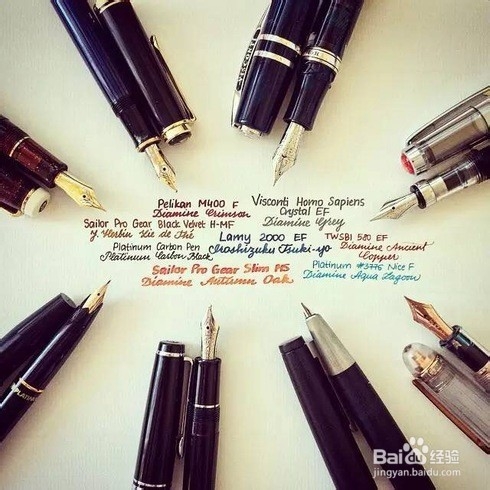 VISCONTI
Pelikan M400 F
Diamine Crimson
Visconti Homo Sapiens
Crystal EF
Diamine Grey
Sailor Pro Gear Black Velvet H-MF
J. Herbin Lie de Thé
Lamy 2000 EF
Iroshizuku Tsuki-yo
TWSBI 580 EF
Diamine Ancient
Copper
Platinum Carbon Pen
Platinum Carbon Black
Platinum #3776 Nice F
Diamine Aqua Lagoon
Sailor Pro Gear Slim MS
Diamine Autumn Oak
PLATINUM
Baidu经验
jingyan.baidu.com